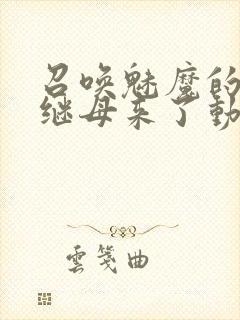 召唤魅魔的
继母来了动
雲箋曲